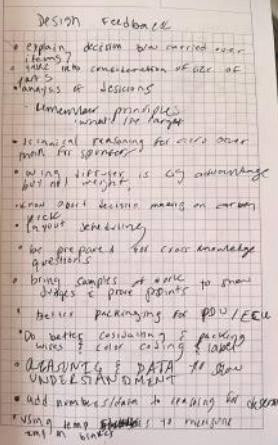 Design Feedback
• explain decision b/w carried over
items?
• take into consideration of use of
parts
• analysis of desicions
- remember principles
what's the target
• technical reasoning for micro over
for sponsors
• wing is big advantage
but not weight,
• know about decision making on
pick
• layout scheduling
• be prepared for cross knowledge
questions
• bring samples of work to show
judges & prove points
• better packinging for PDU/ECU
• Do better & packing
wires & color coding & label
• & DATA to show
UNDERSTANDMENT
• add numbers/data to reasoning for
• using temp to measure
temp in